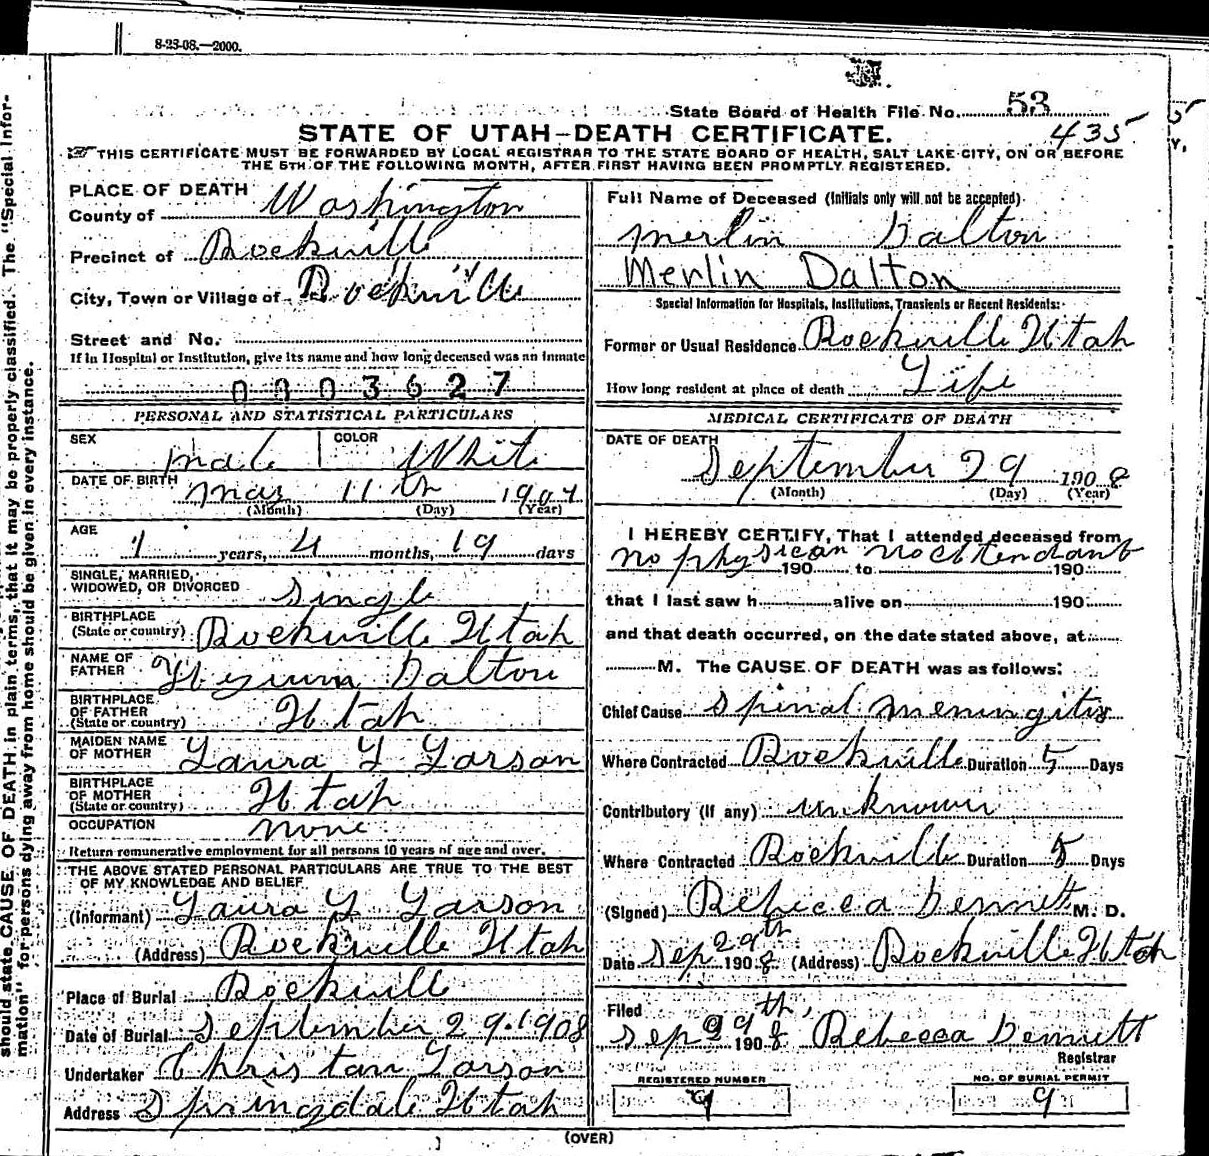 8-23-08.—2000.
State Board of Health File No. 53
435
STATE OF UTAH—DEATH CERTIFICATE.
THIS CERTIFICATE MUST BE FORWARDED BY LOCAL REGISTRAR TO THE STATE BOARD OF HEALTH, SALT LAKE CITY, ON OR BEFORE
THE 5TH OF THE FOLLOWING MONTH, AFTER FIRST HAVING BEEN PROMPTLY REGISTERED.
should state CAUSE OF DEATH in plain terms, that it may be properly classified. The "Special Infor-
mation" for persons dying away from home should be given in every instance.
PLACE OF DEATH
County of Washington
Precinct of Rockville
City, Town or Village of Rockville
Street and No.
If in Hospital or Institution, give its name and how long deceased was an inmate
0003627
PERSONAL AND STATISTICAL PARTICULARS
SEX male COLOR White
DATE OF BIRTH May 11th 1907
(Month) (Day) (Year)
AGE
1 years, 4 months, 19 days
SINGLE, MARRIED,
WIDOWED, OR DIVORCED single
BIRTHPLACE
(State or country) Rockville Utah
NAME OF
FATHER Hyrum Dalton
BIRTHPLACE
OF FATHER
(State or country) Utah
MAIDEN NAME
OF MOTHER Laura L Larson
BIRTHPLACE
OF MOTHER
(State or country) Utah
OCCUPATION none
Return remunerative employment for all persons 10 years of age and over.
THE ABOVE STATED PERSONAL PARTICULARS ARE TRUE TO THE BEST
OF MY KNOWLEDGE AND BELIEF
(Informant) Laura L Larson
(Address) Rockville Utah
Place of Burial Rockvill
Date of Burial September 29.1908
Undertaker Christan Larson
Address Springdale Utah
Full Name of Deceased (Initials only will not be accepted)
Merlin Dalton
Merlin Dalton
Special Information for Hospitals, Institutions, Transients or Recent Residents:
Former or Usual Residence Rockville Utah
How long resident at place of death Life
MEDICAL CERTIFICATE OF DEATH
DATE OF DEATH
September 29 1908
(Month) (Day) (Year)
I HEREBY CERTIFY, That I attended deceased from
no physican no attendant
190 to 190
that I last saw h alive on 190
and that death occurred, on the date stated above, at
M. The CAUSE OF DEATH was as follows:
Chief Cause spinal meningitis
Where Contracted Rockville Duration 5 Days
Contributory (if any) unknown
Where Contracted Rockville Duration 5 Days
(Signed) Rebecca Bennett M. D.
Date Sep 29th 1908 (Address) Rockville Utah
Filed
Sep 29th, 1908 Rebecca Bennett
Registrar
REGISTERED NUMBER
9
NO. OF BURIAL PERMIT
9
(OVER)